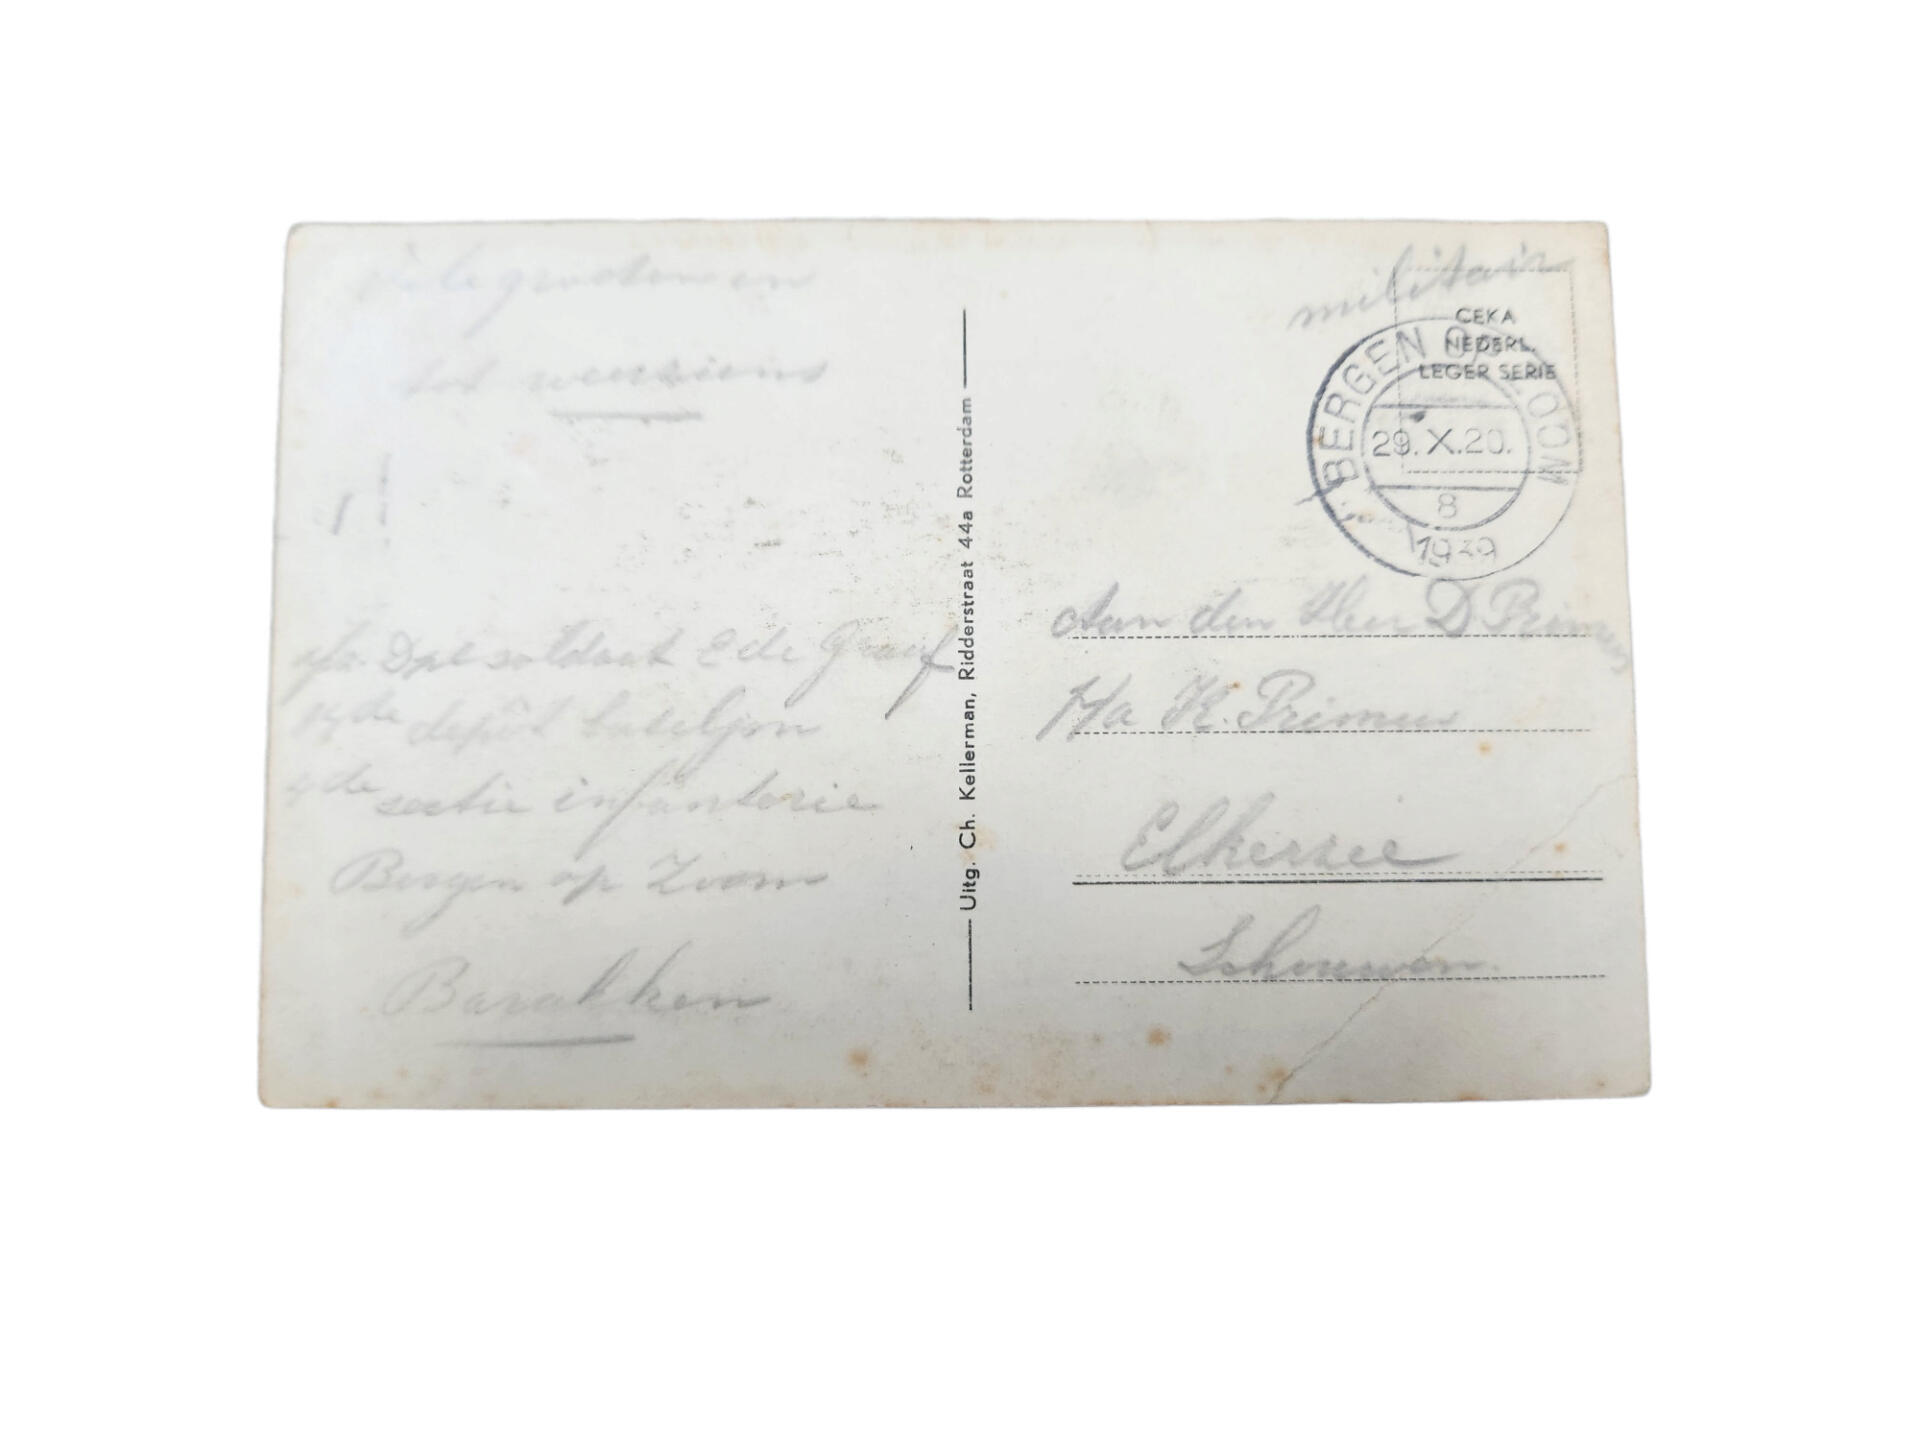 Vele groeten en
tot weerziens
afz. Dpl soldaat E de Graaf
depôt bataljon
4de sectie infanterie
Bergen op Zoom
Barakken
Uitg. Ch. Kellerman, Ridderstraat 44a Rotterdam
militair
CEKA
NEDERL.
LEGER SERIE
BERGEN OP ZOOM
29.X.20.
8
1939
Aan den Heer D Primus
p/a K. Primus
Elkerzee
Schouwen.